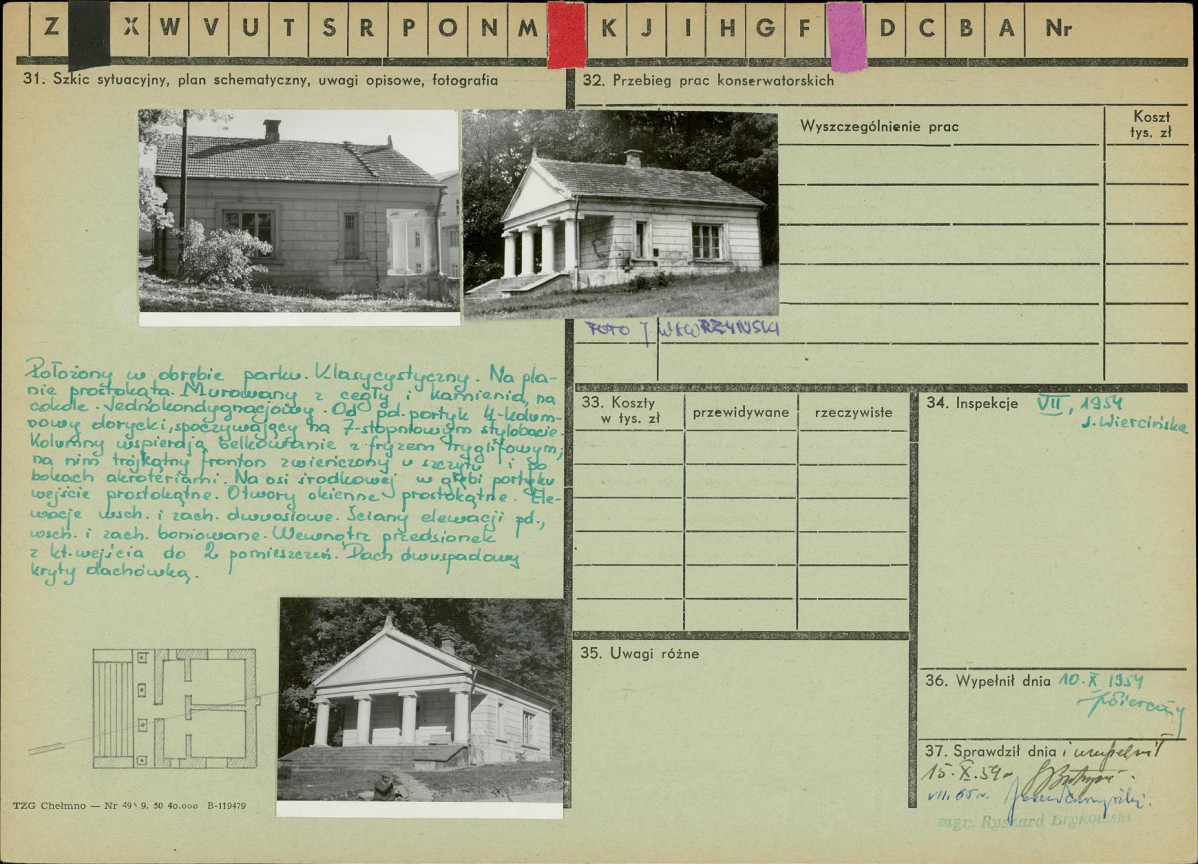 Z X W V U T S R P O N M K J I H G F D C B A Nr
31. Szkic sytuacyjny, plan schematyczny, uwagi opisowe, fotografia
32. Przebieg prac konserwatorskich
Wyszczególnienie prac
Koszt
tys. zł
FOTO J WAWRZYŃSKI
Położony w obrębie parku. Klasycystyczny. Na pla-
nie prostokąta. Murowany z cegły i kamienia, na
cokole. Jednokondygnacjowy. Od pd. portyk 4-kolum-
nowy dorycki, spoczywający na 7-stopniowym stylobacie.
Kolumny wspierają belkowanie z fryzem tryglifowym,
na nim trójkątny fronton zwieńczony u szczytu i po
bokach akroteriami. Na osi środkowej w głębi portyku
wejście prostokątne. Otwory okienne prostokątne. Ele-
wacje wsch. i zach. dwuosiowe. Ściany elewacji pd.,
wsch. i zach. boniowane. Wewnątrz przedsionek
z kt. wejścia do 2 pomieszczeń. Dach dwuspadowy
kryty dachówką.
33. Koszty
w tys. zł
przewidywane
rzeczywiste
34. Inspekcje VII, 1954
J. Wiercińska
35. Uwagi różne
36. Wypełnił dnia 10.X 1954
37. Sprawdził dnia i uzupełnił
15.X.59
VII.65 r.
mgr. Ryszard Brykowski
TZG Chełmno — Nr 495 9. 50 40.000 B-119479